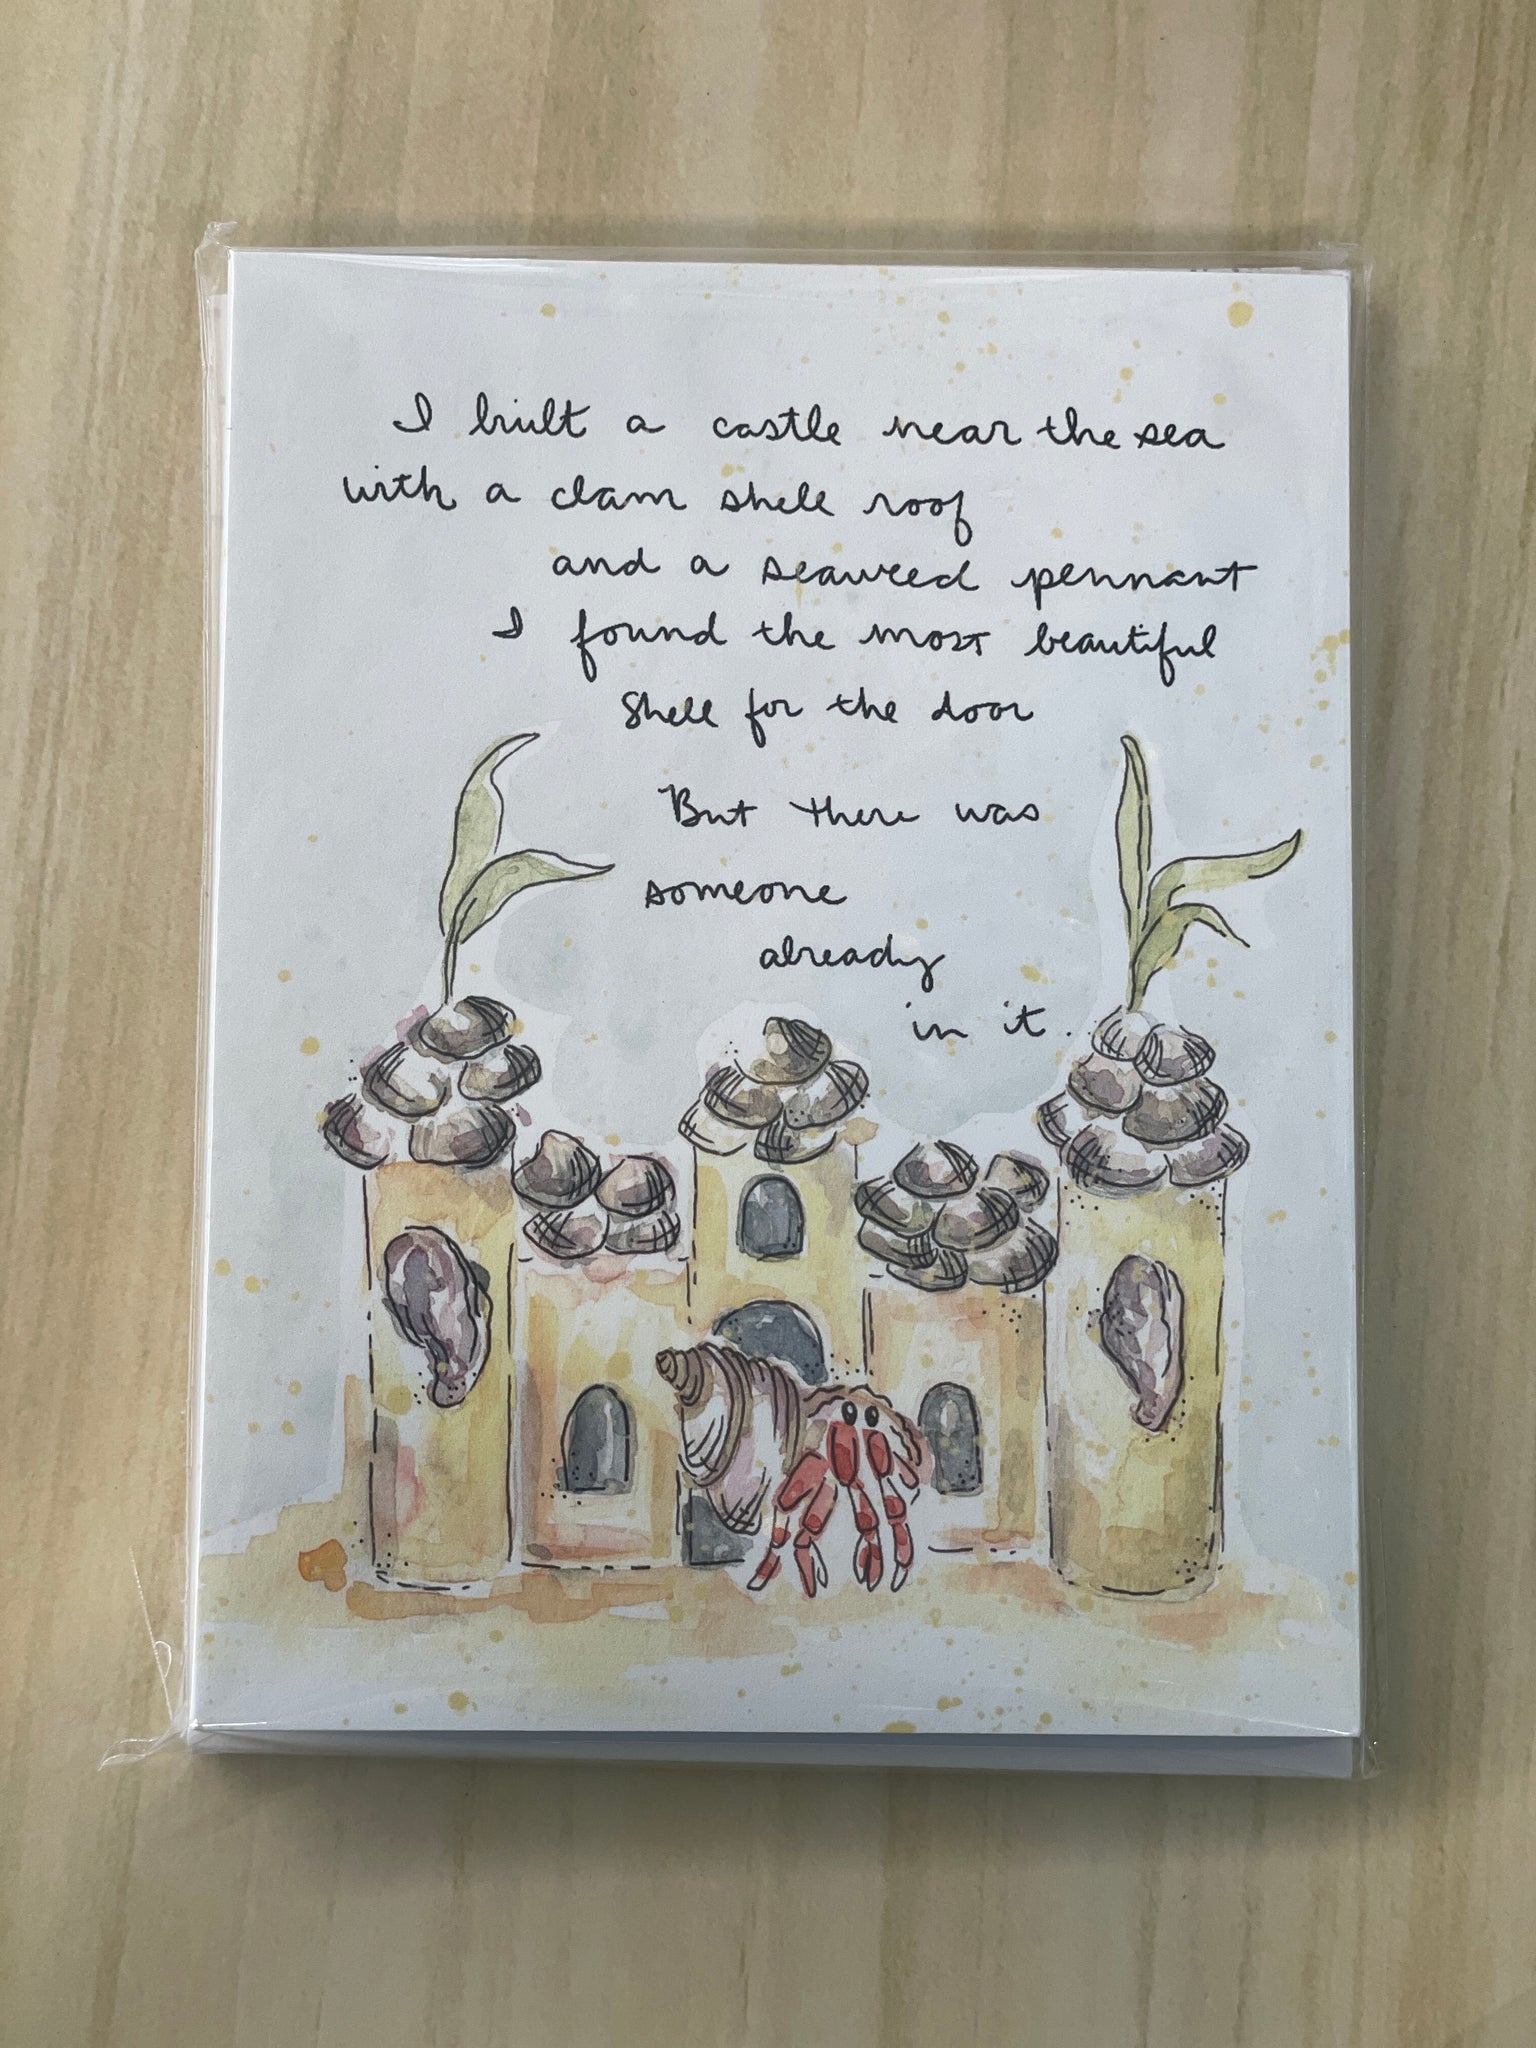 I built a castle near the sea
with a clam shell roof
and a seaweed pennant
I found the most beautiful
Shell for the door
But there was
someone
already
in it.